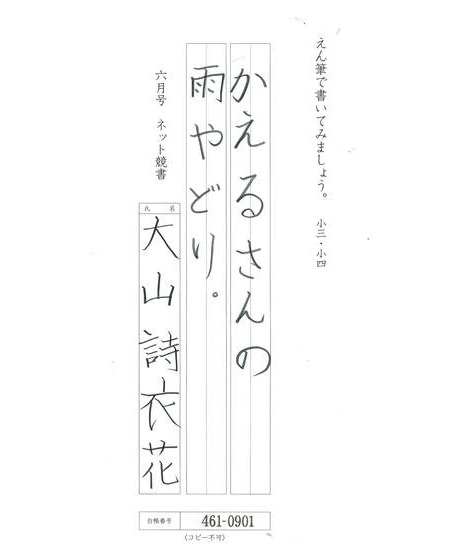 えん筆で書いてみましょう。 小三・小四
かえるさんの
雨やどり。
六月号 ネット競書
氏名
大山詩衣花
台帳番号 461-0901
(コピー不可)